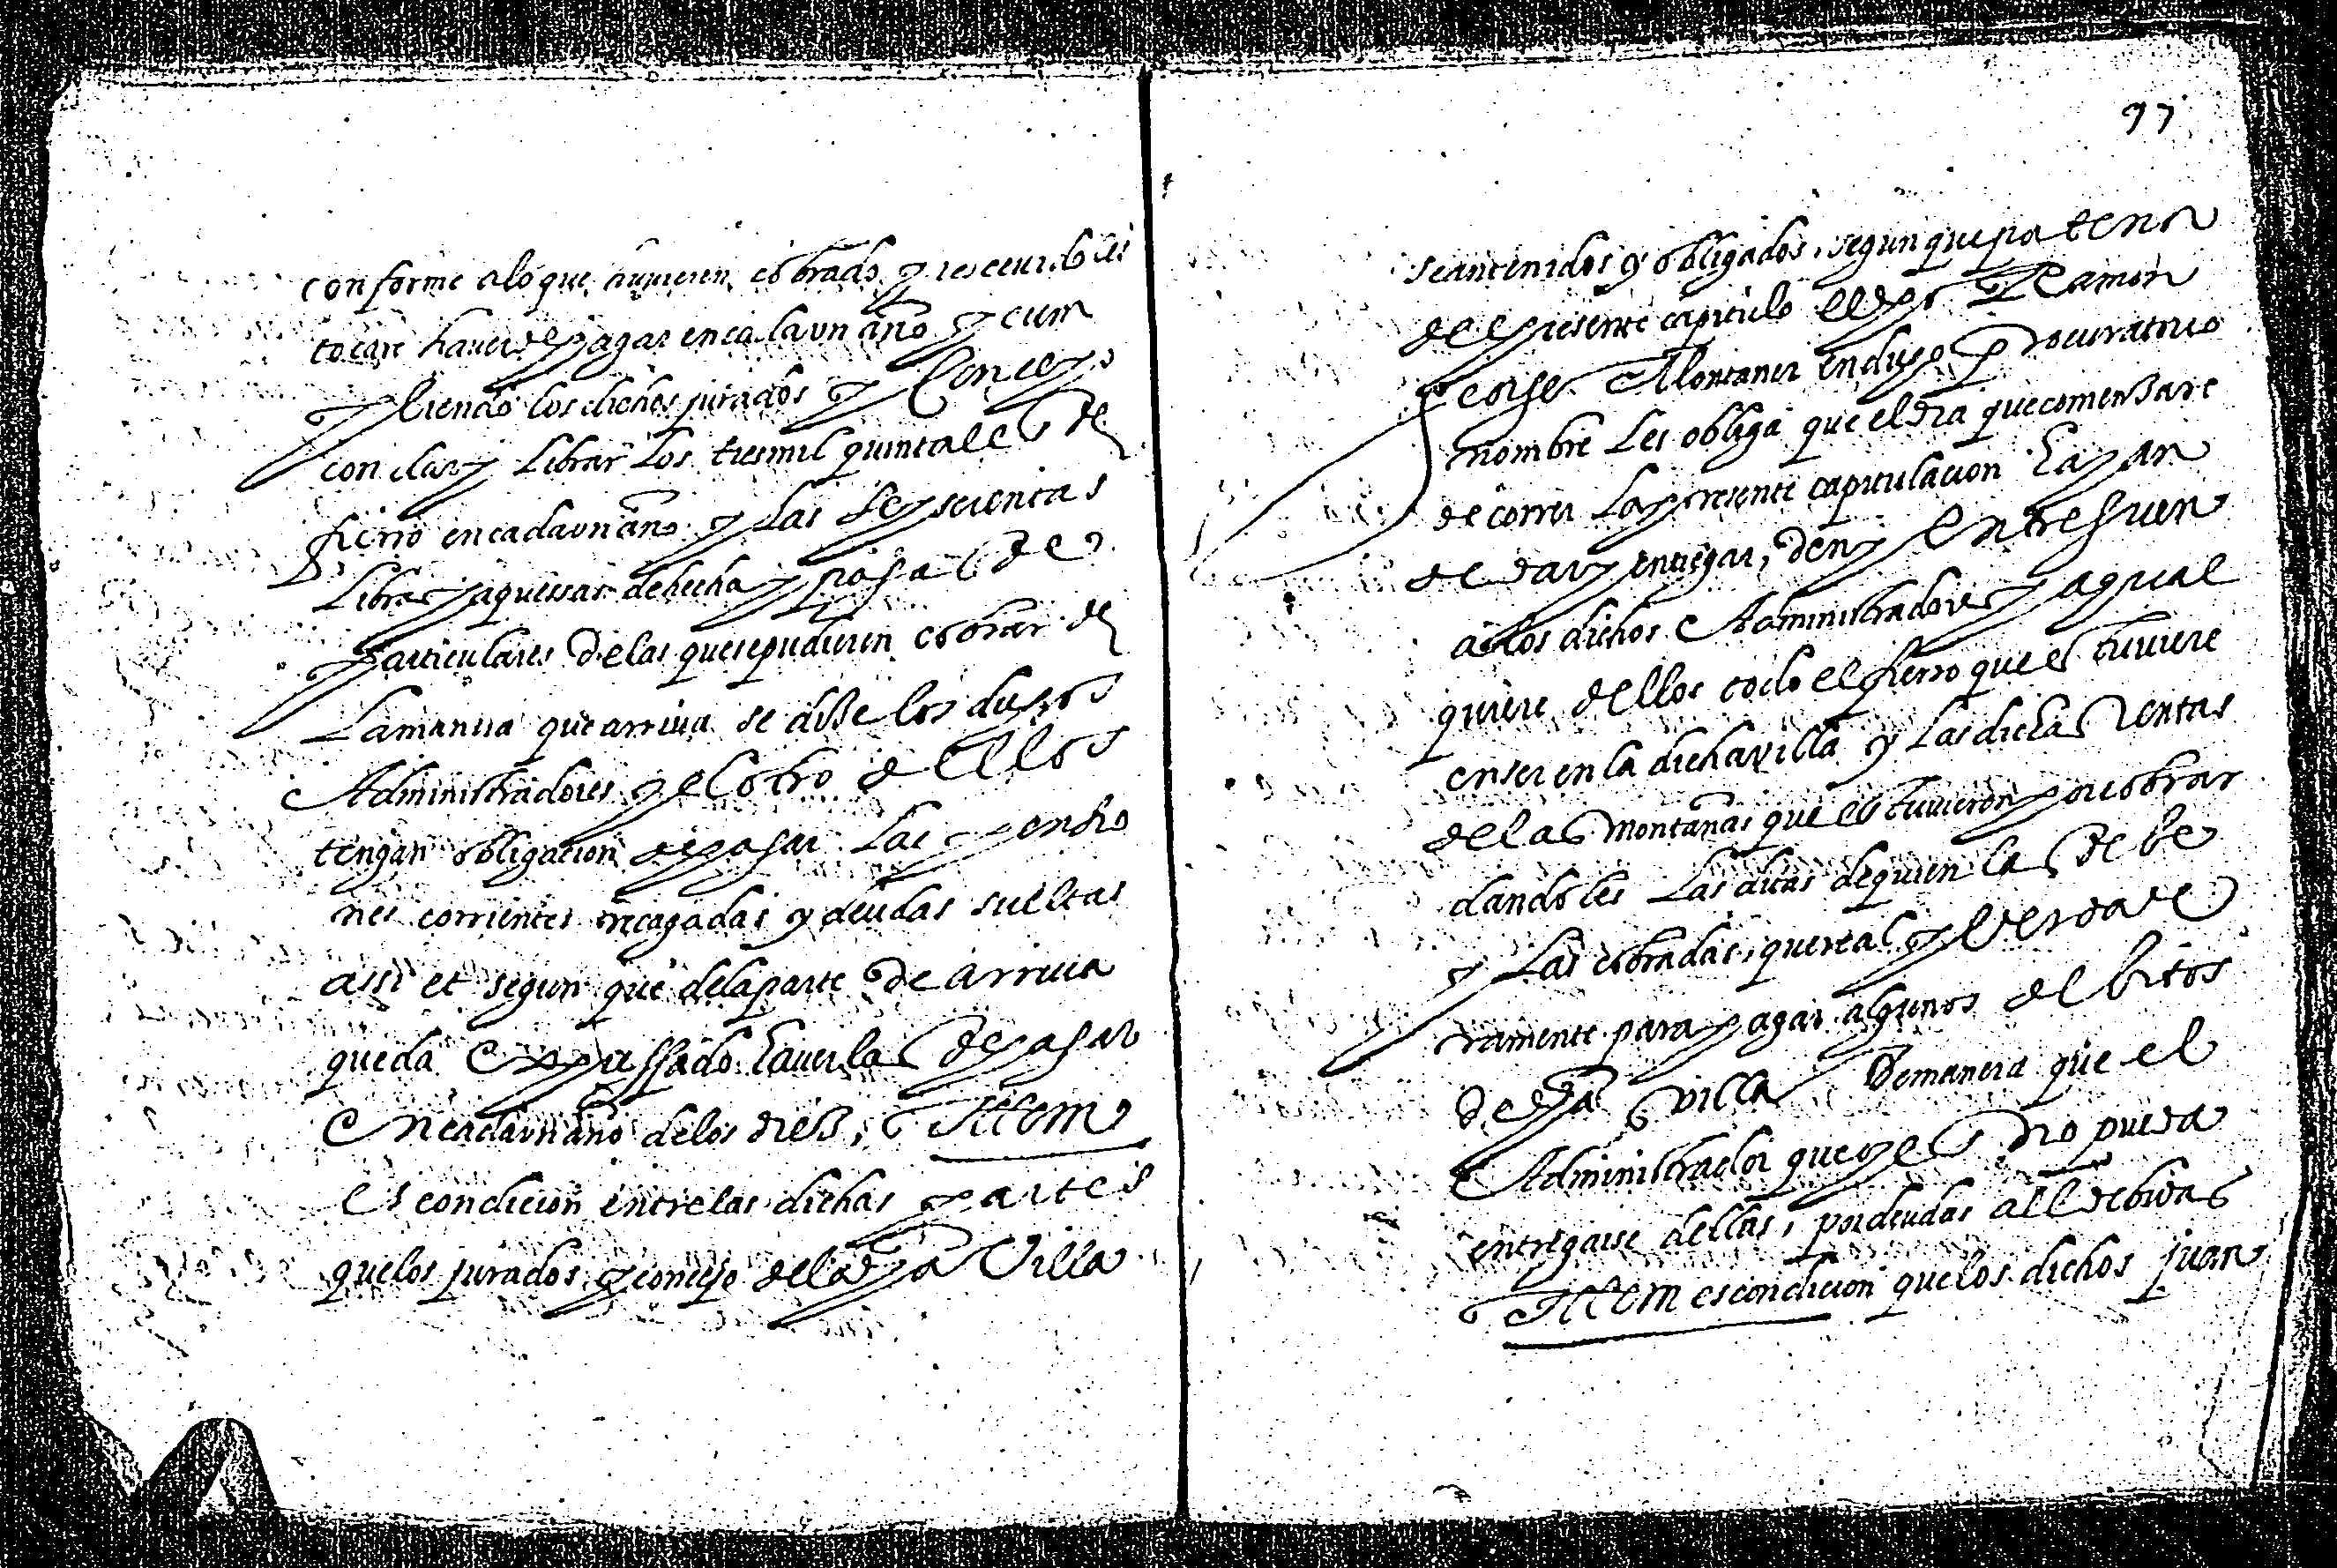 conforme alo que huuieren cobrado y resceuido les
tocare hauer de pagar en cada vn año y cum
pliendo los dichos jurados y Concejo
con dar y librar los tres mil quintales de
fierro en cada vn año y las seyscientas
Libras jaquessas de hecha y paga de
particulares de las que se pudieren cobrar de
La manera que arriua se disse los dichos
Administradores y el otro dellos
tengan obligacion de pagar las pensio
nes corrientes recagadas y deudas sueltas
assi et segun que de la parte de arriua
queda expressado hauerlas de pagar
En cada vn año de los diess, Ittem
es condicion entre las dichas partes
que los jurados y concejo de la dha Villa
97
sean tenidos y obligados, segun que por tenor
del presente capitulo el dho Ramon
George Montaner en dicho Procuratorio
nombre les obliga que el dia que comensare
de correr la presente capitulacion hayan
de dar y entregar, den y entreguen
a los dichos Administradores y a qual
quiere dellos todo el fierro que estuuiere
en ser en la dicha villa y las dichas rentas
de las montañas que estuuieren por cobrar
dandoles las ditas de quien las debe
y las cobradas, que real y verdade
ramente para pagar algunos debitos
de dha villa Demanera que el
Administrador que es dio pueda
entregarse dellas, por deudas a el debidas
Ittem es condicion que los dichos juan